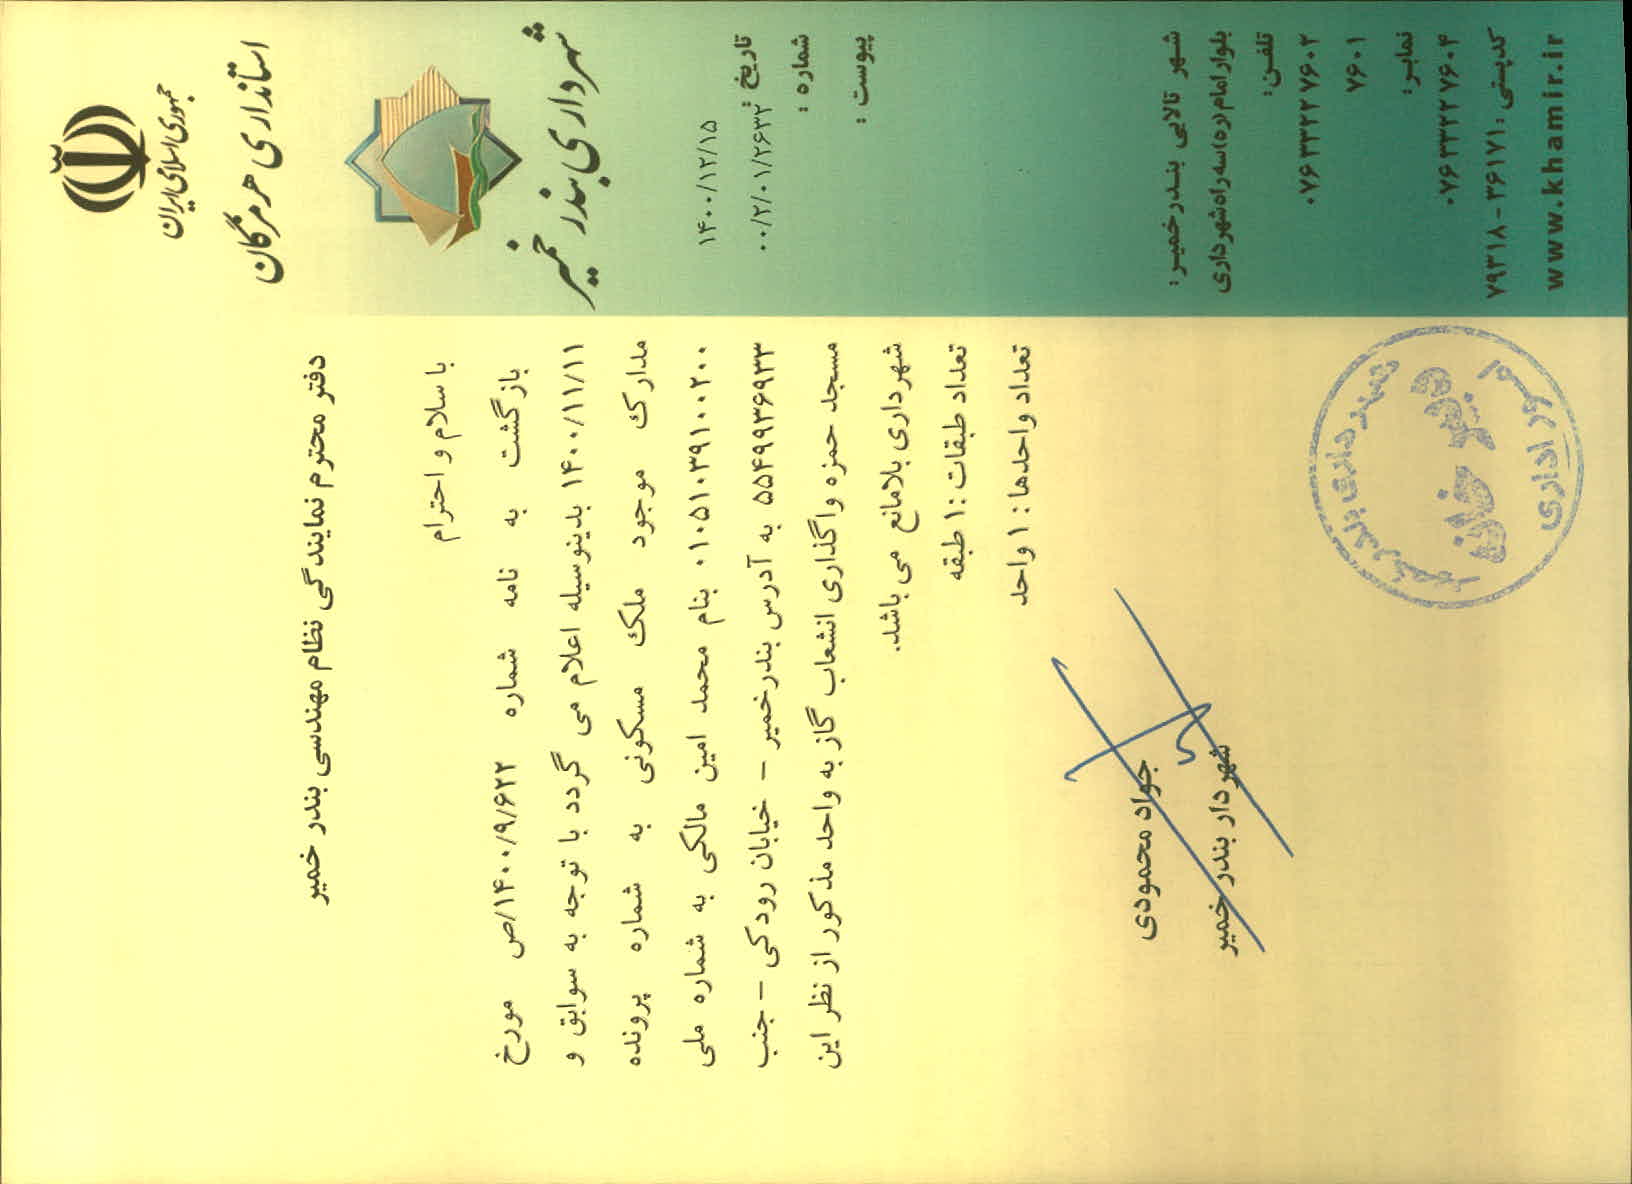 جمهوری اسلامی ایران
استانداری هرمزگان
شهرداری بندر خمیر
۱۴۰۰/۱۲/۱۵
تاریخ :
۰۰/۲/۰۱/۲۶۳۲
شماره :
پیوست :
دفتر محترم نمایندگی نظام مهندسی بندر خمیر
با سلام و احترام
بازگشت به نامه شماره ۱۴۰۰/۹/۶۲۲/ص مورخ
۱۴۰۰/۱۱/۱۱ بدینوسیله اعلام می گردد با توجه به سوابق و
مدارک موجود ملک مسکونی به شماره پرونده
۰۱۰۵۱۰۳۹۱۰۰۲۰۰ بنام محمد امین مالکی به شماره ملی
۵۵۴۹۹۳۶۹۳۳ به آدرس بندرخمیر – خیابان رودکی – جنب
مسجد حمزه واگذاری انشعاب گاز به واحد مذکور از نظر این
شهرداری بلامانع می باشد.
تعداد طبقات :۱ طبقه
تعداد واحدها : ۱ واحد
جواد محمودی
شهردار بندر خمیر
شهرداری بندر خمیر
امور اداری
شهر تالابی بندرخمیر:
بلوار امام (ره) سه راه شهرداری
تلفن:
۰۷۶۳۳۲۲۷۶۰۲
۷۶۰۱
نمابر:
۰۷۶۳۳۲۲۷۶۰۴
کدپستی : ۳۶۱۷۱-۷۹۳۱۸
www.khamir.ir